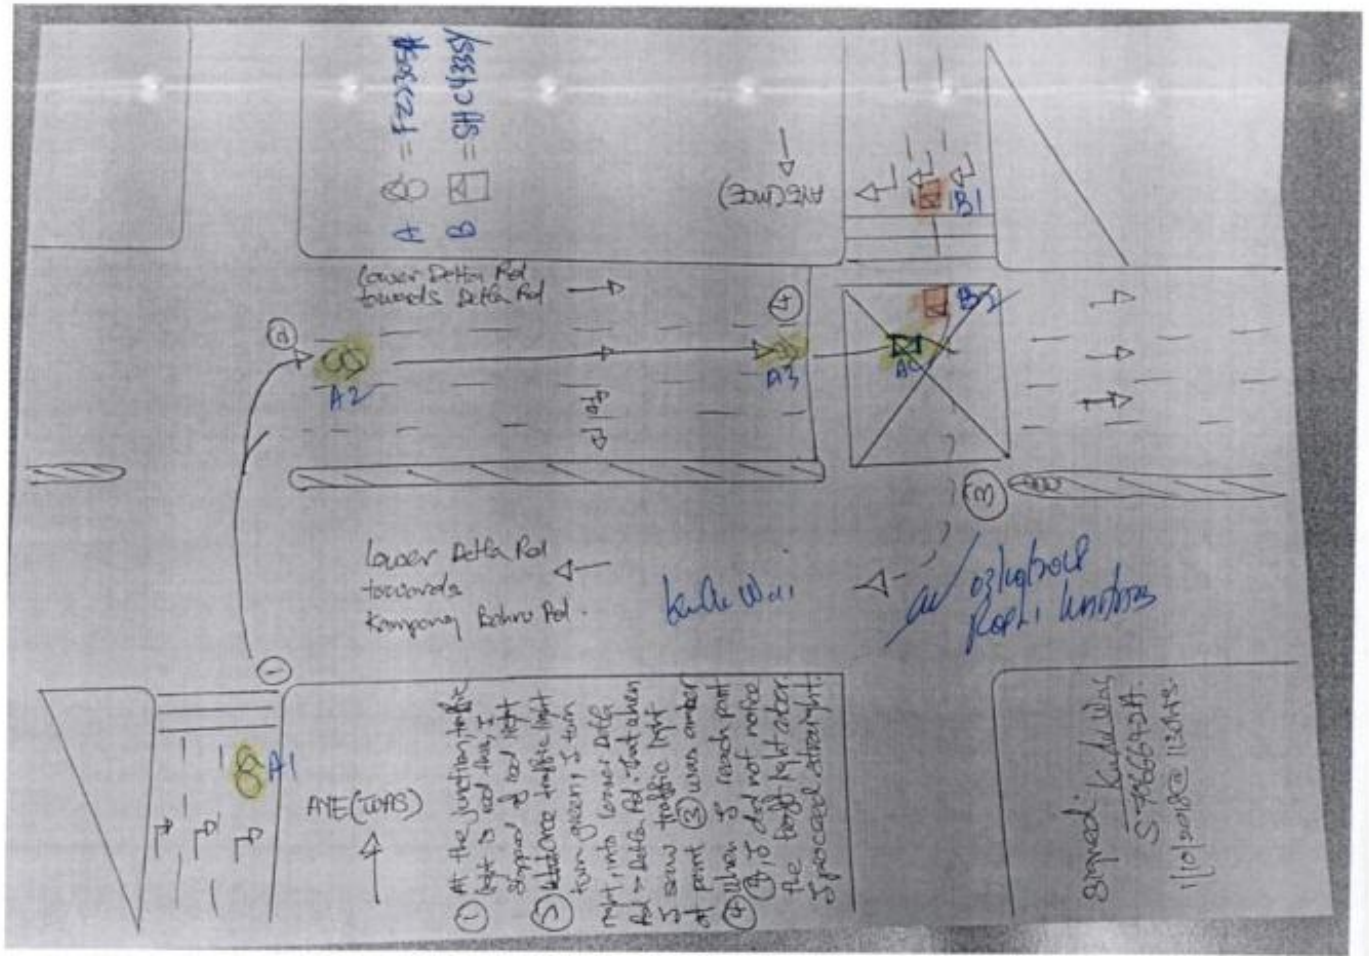 A = FZ2395
B = SHC4335Y
AYE(MCE)
B1
Lower Delta Rd
towards Delta Rd
2
4
B2
A2
A3
A4
3
Lower Delta Rd
towards
Kampong Bahru Rd.
1
A1
AYE(TUAS)
1 At the junction, traffic
light is red thus, I
stopped at red light
Once traffic light
turn green, I turn
right, into Lower Delta
Rd Delta Rd. That when
I saw traffic light
at point 3 was amber
4 When I reach point
4, I did not notice
the traffic light after.
I proceed straight.
Signed:
1/10/2018 @